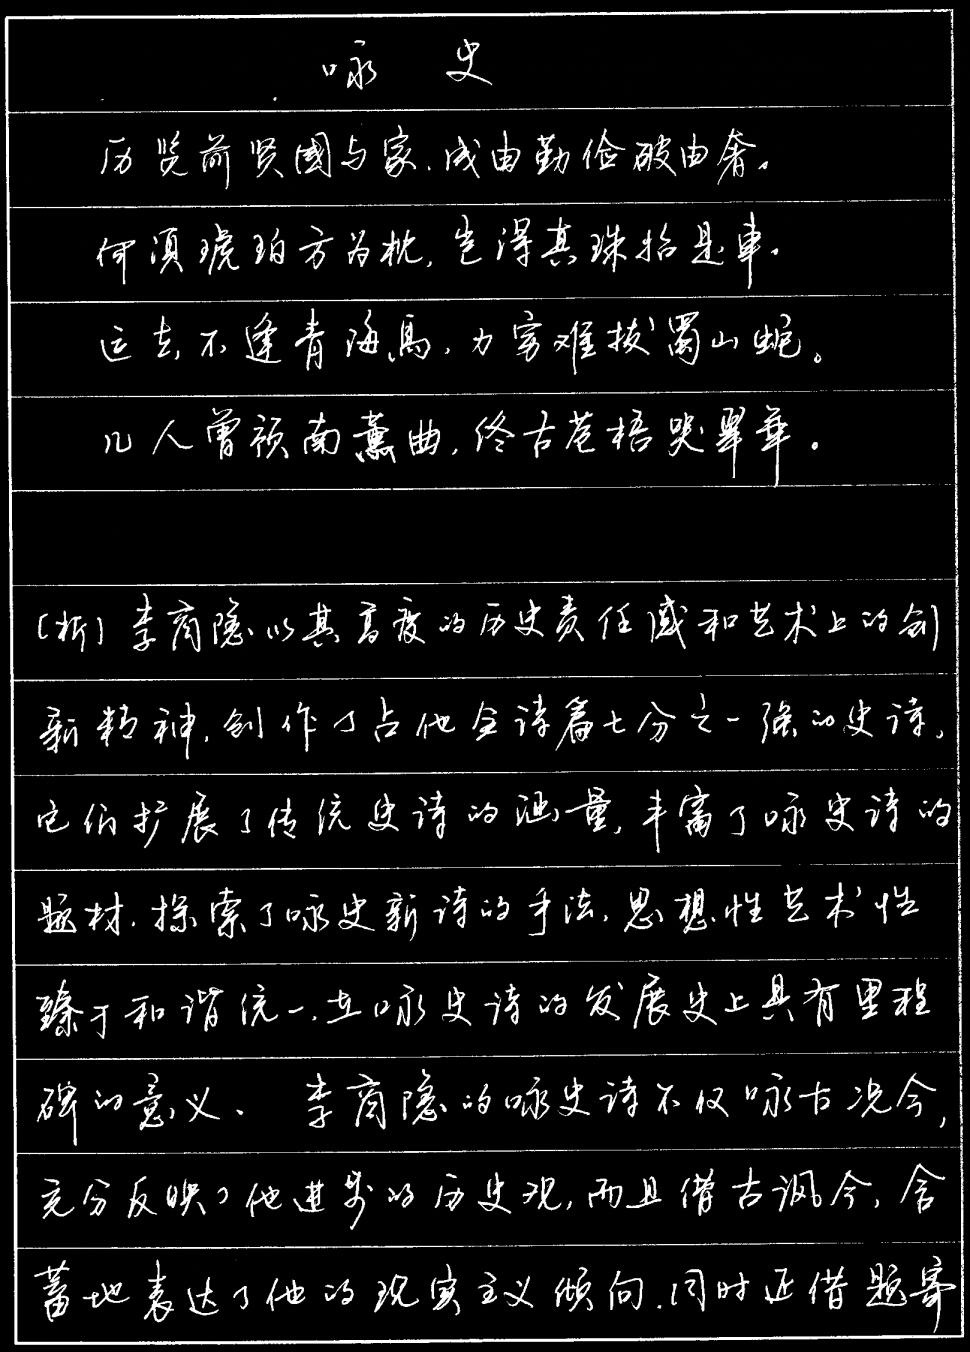 咏 史
历览前贤國与家，成由勤俭破由奢。
何须琥珀方为枕，岂得真珠始是車。
运去不逢青海馬，力穷难拔蜀山蛇。
几人曾预南薰曲，终古苍梧哭翠華。
〔析〕李商隐以其高度的历史责任感和艺术上的创
新精神，创作了占他全诗篇七分之一强的史诗，
它们扩展了传统史诗的涵量，丰富了咏史诗的
题材，探索了咏史新诗的手法，思想性艺术性
臻于和谐统一，在咏史诗的发展史上具有里程
碑的意义。 李商隐的咏史诗不仅咏古况今，
充分反映了他进步的历史观，而且借古讽今，含
蓄地表达了他的现实主义倾向，同时还借题寄